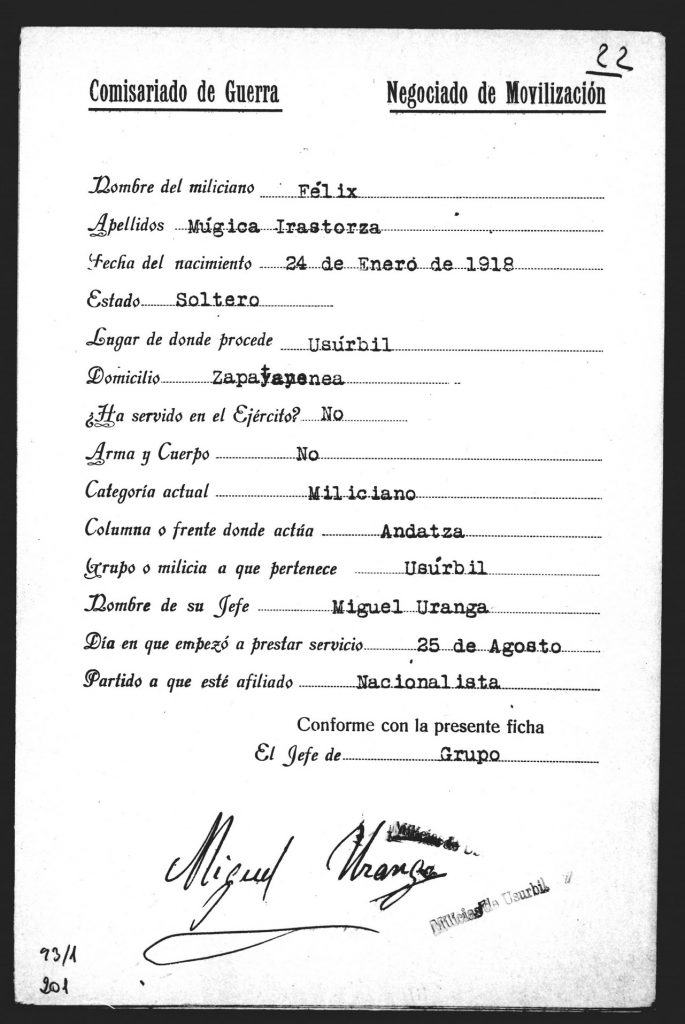 22
Comisariado de Guerra Negociado de Movilización
Nombre del miliciano Félix
Apellidos Múgica Irastorza
Fecha del nacimiento 24 de Enero de 1918
Estado Soltero
Lugar de donde procede Usúrbil
Domicilio
¿Ha servido en el Ejército? No
Arma y Cuerpo No
Categoría actual Miliciano
Columna o frente donde actúa Andatza
Grupo o milicia a que pertenece Usúrbil
Nombre de su Jefe Miguel Uranga
Día en que empezó a prestar servicio 25 de Agosto
Partido a que esté afiliado Nacionalista
Conforme con la presente ficha
El Jefe de Grupo
Miguel Uranga
Milicias de U
Milicias de Usurbil
93/1
201